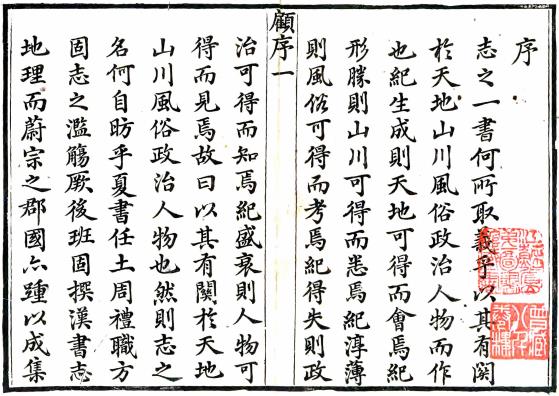 序
志之一書何所取義乎以其有関
於天地山川風俗政治人物而作
也紀生成則天地可得而會焉紀
形勝則山川可得而悉焉紀淳薄
則風俗可得而考焉紀得失則政
顧序一
治可得而知焉紀盛衰則人物可
得而見焉故曰以其有関於天地
山川風俗政治人物也然則志之
名何自昉乎夏書任土周禮職方
固志之濫觴厥後班固撰漢書志
地理而蔚宗之郡國亦踵以成集